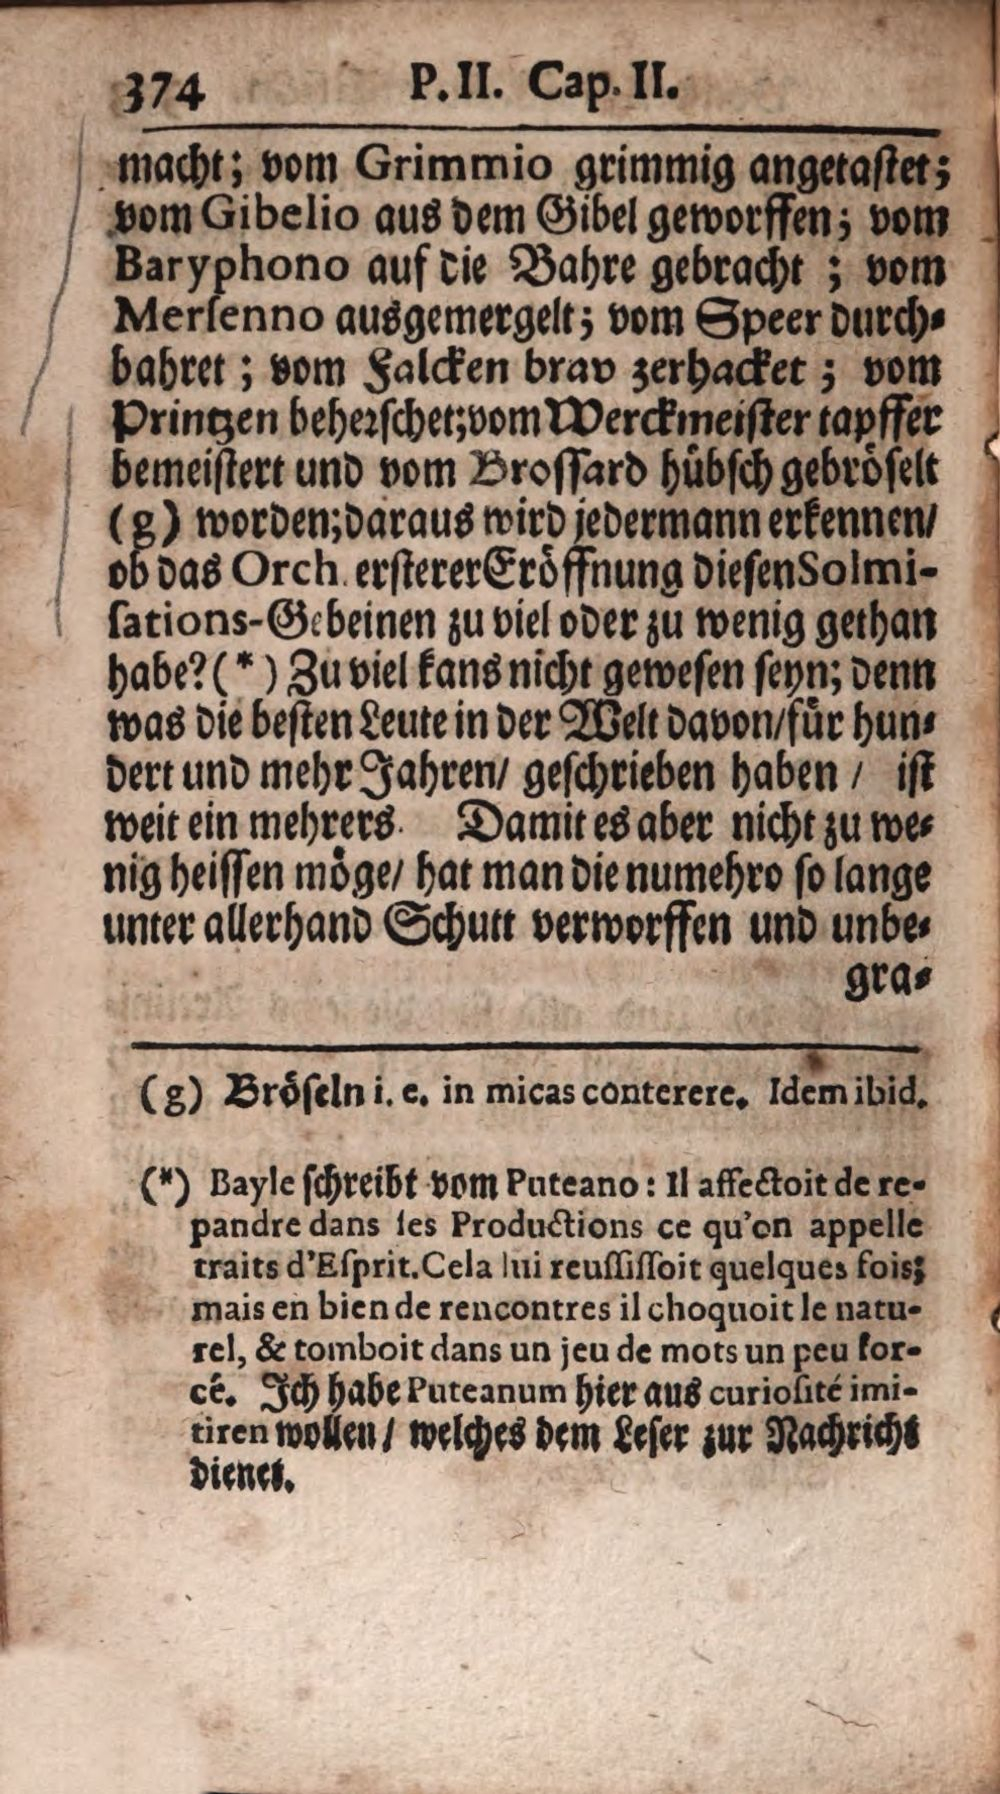 374 P. II. Cap. II.
macht; vom Grimmio grimmig angetaſtet;
vom Gibelio aus dem Gibel geworffen; vom
Baryphono auf die Bahre gebracht ; vom
Merſenno ausgemergelt; vom Speer durch⸗
bahret ; vom Falcken brav zerhacket ; vom
Printzen beherſchet; vom Werckmeiſter tapffer
bemeiſtert und vom Broſſard hübſch gebröſelt
(g) worden; daraus wird jedermann erkennen/
ob das Orch. erſterer Eröffnung dieſen Solmi-
ſations-Gebeinen zu viel oder zu wenig gethan
habe? (*) Zu viel kans nicht geweſen ſeyn; denn
was die beſten Leute in der Welt davon/ für hun⸗
dert und mehr Jahren/ geſchrieben haben / iſt
weit ein mehrers. Damit es aber nicht zu we⸗
nig heiſſen möge/ hat man die numehro ſo lange
unter allerhand Schutt verworffen und unbe⸗
gra⸗
(g) Bröſeln i. e. in micas conterere. Idem ibid.
(*) Bayle ſchreibt vom Puteano : Il affectoit de re-
pandre dans ſes Productions ce qu'on appelle
traits d'Eſprit. Cela lui reuſſiſſoit quelques fois;
mais en bien de rencontres il choquoit le natu-
rel, & tomboit dans un jeu de mots un peu for-
cé. Ich habe Puteanum hier aus curioſité imi-
tiren wollen / welches dem Leſer zur Nachricht
dienet.